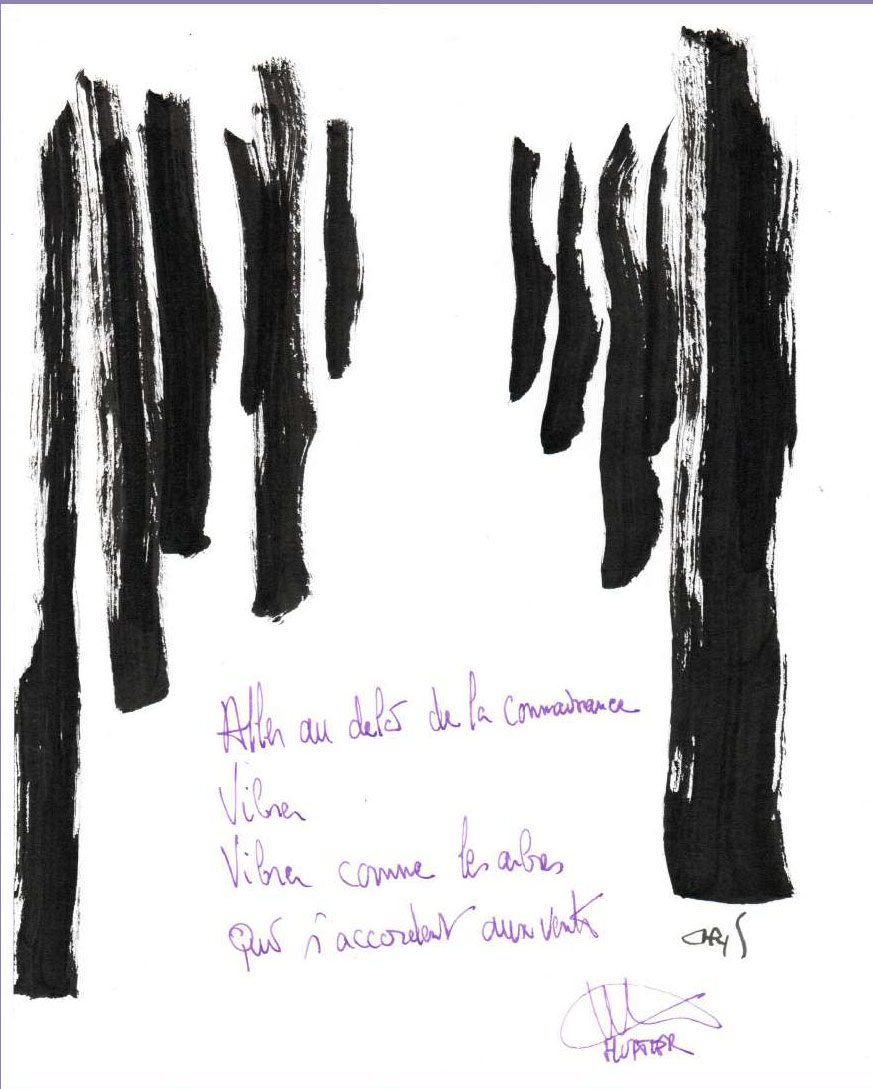 Aller au delà de la connaissance
Vibrer
Vibrer comme les arbres
Qui s'accordent aux vents